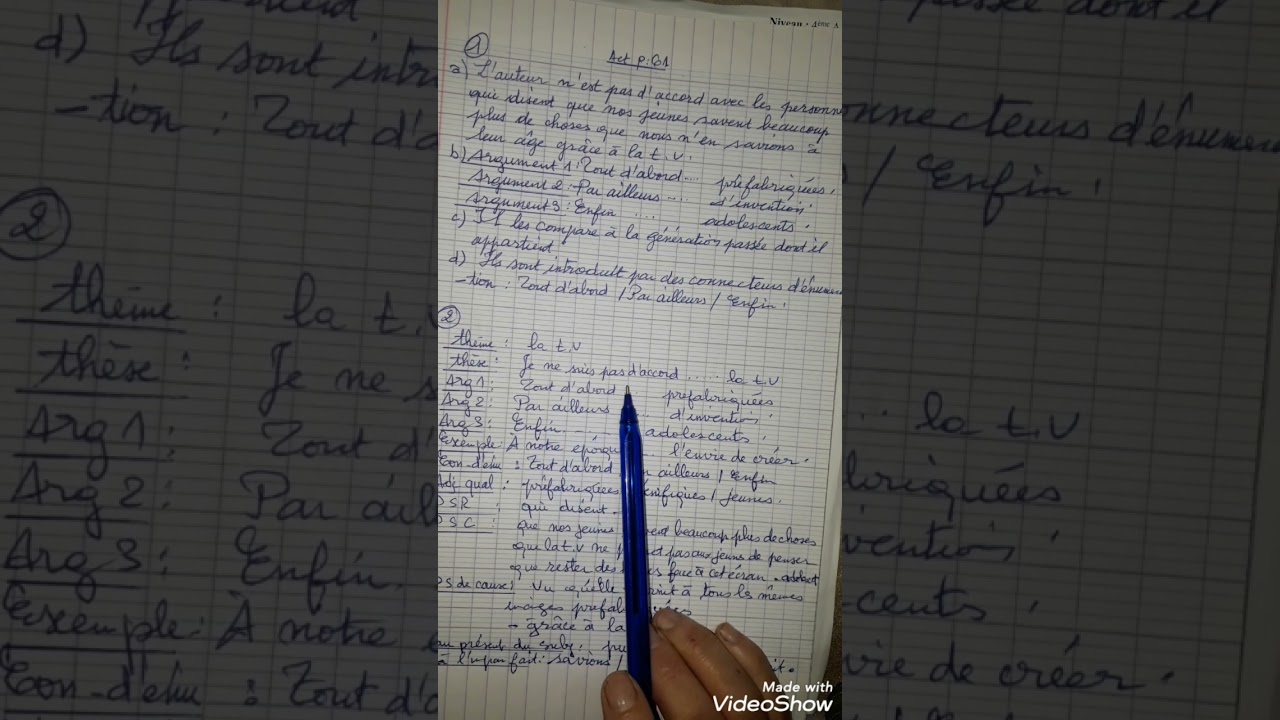 Niveau : 4ème A
① Act p:61
a) L'auteur n'est pas d'accord avec les personn
qui disent que nos jeunes savent beaucoup
plus de choses que nous n'en savions à
leur âge grâce à la t.v.
b) Argument 1: Tout d'abord.... préfabriquées.
Argument 2: Par ailleurs .... d'invention.
Argument 3: Enfin .... adolescents.
c) Il les compare à la génération passée dont il
appartient.
d) Ils sont introduit par des connecteurs d'énumera
-tion : Tout d'abord / Par ailleurs / Enfin.
②
thème : la t.v
thèse : Je ne suis pas d'accord .... la t.v
Arg 1: Tout d'abord préfabriquées
Arg 2: Par ailleurs .... d'invention.
Arg 3: Enfin .... adolescents.
Exemple: À notre époque l'envie de créer.
Con-d'énu : Tout d'abord ailleurs / Enfin
Adj qual : préfabriquées / jeunes.
PSR : qui disent
PSC : que nos jeunes beaucoup plus de choses
que la t.v ne pas aux jeunes de penser
que rester des face à cet écran
PS de cause: Vu qu'elle à tous les mêmes
images
- grâce à la
au présent du subj:
à l'imparfait: savions /
Made with
VideoShow